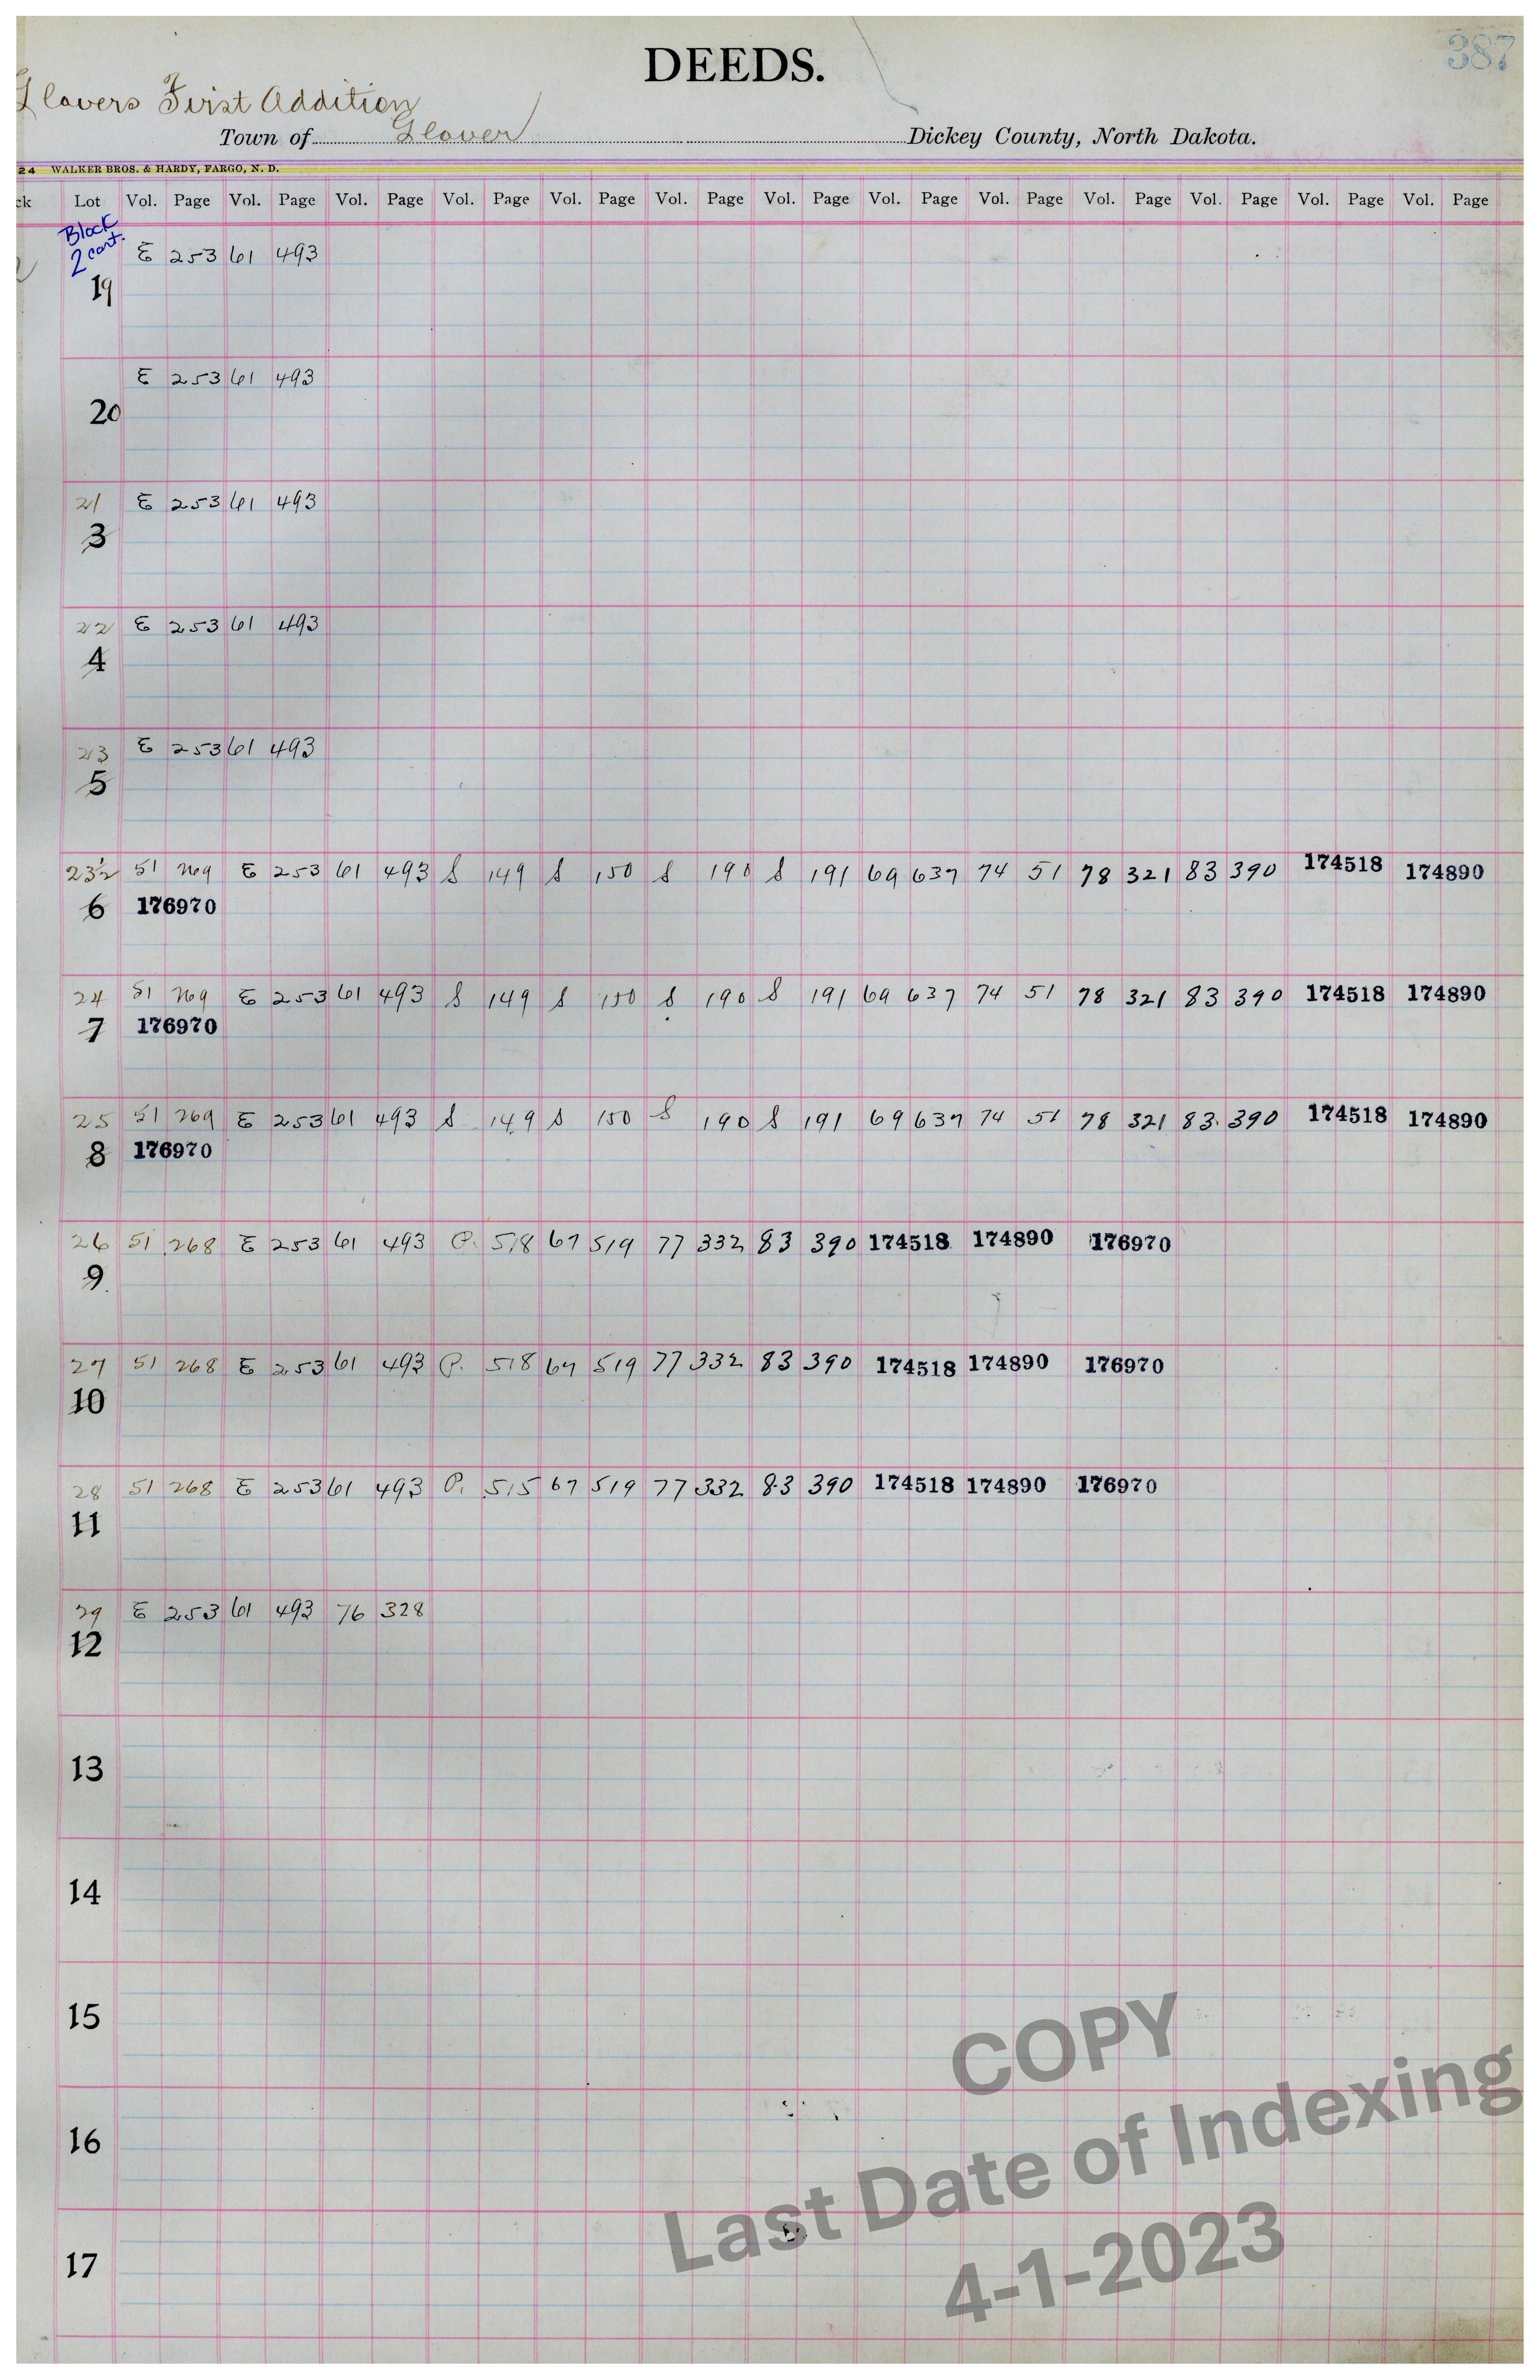 387
DEEDS.
Glovers First Addition
Town of Glover Dickey County, North Dakota.
24 WALKER BROS. & HARDY, FARGO, N. D.
ck Lot Vol. Page Vol. Page Vol. Page Vol. Page Vol. Page Vol. Page Vol. Page Vol. Page Vol. Page Vol. Page Vol. Page Vol. Page Vol. Page
Block
2 cont.
E 253 61 493
19
E 253 61 493
20
21 E 253 61 493
3
22 E 253 61 493
4
23 E 253 61 493
5
23½ 51 269 E 253 61 493 S 149 S 150 S 190 S 191 69 637 74 51 78 321 83 390 174518 174890
6 176970
24 51 269 E 253 61 493 S 149 S 150 S 190 S 191 69 637 74 51 78 321 83 390 174518 174890
7 176970
25 51 269 E 253 61 493 S 149 S 150 S 190 S 191 69 637 74 51 78 321 83 390 174518 174890
8 176970
26 51 268 E 253 61 493 P. 518 67 519 77 332 83 390 174518 174890 176970
9
27 51 268 E 253 61 493 P. 518 67 519 77 332 83 390 174518 174890 176970
10
28 51 268 E 253 61 493 P. 515 67 519 77 332 83 390 174518 174890 176970
11
29 E 253 61 493 76 328
12
13
14
15
16
17
COPY
Last Date of Indexing
4-1-2023